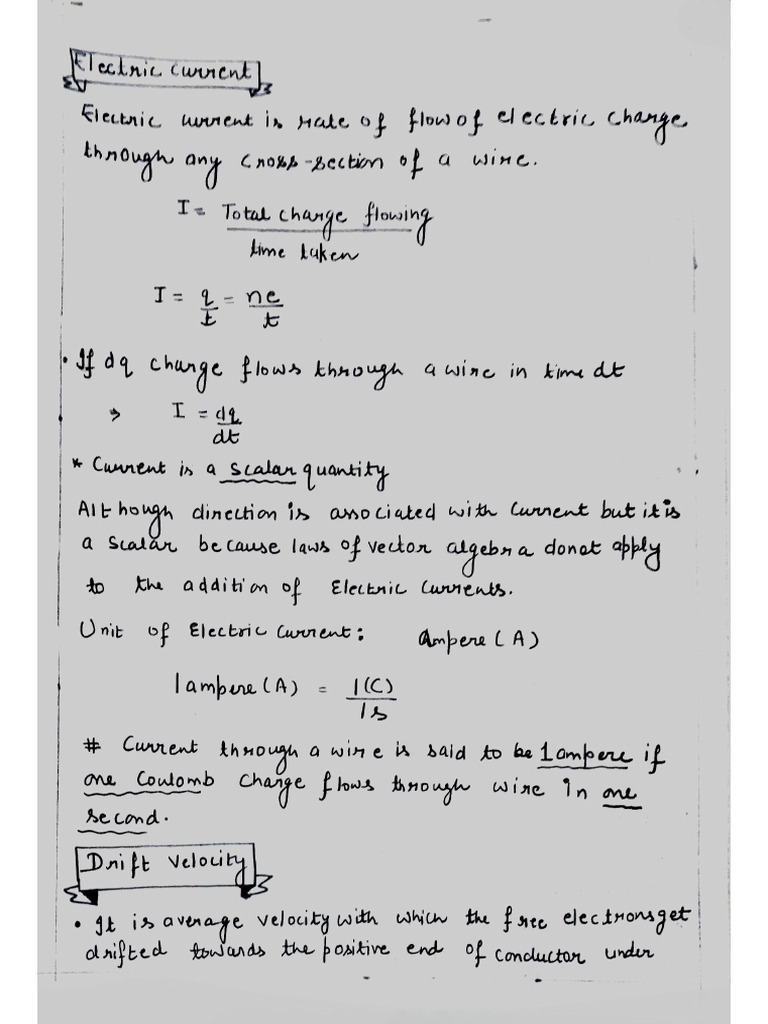 Electric Current
Electric current is rate of flow of electric charge
through any cross-section of a wire.
I = Total charge flowing
time taken
I = q/t = ne/t
• If dq charge flows through a wire in time dt
⇒ I = dq/dt
* Current is a scalar quantity
Although direction is associated with Current but it is
a scalar because laws of vector algebra donot apply
to the addition of Electric Currents.
Unit of Electric Current: Ampere (A)
1 ampere (A) = 1(C)/1s
# Current through a wire is said to be 1 ampere if
one Coulomb charge flows through wire in one
second.
Drift Velocity
• It is average velocity with which the free electrons get
drifted towards the positive end of conductor under